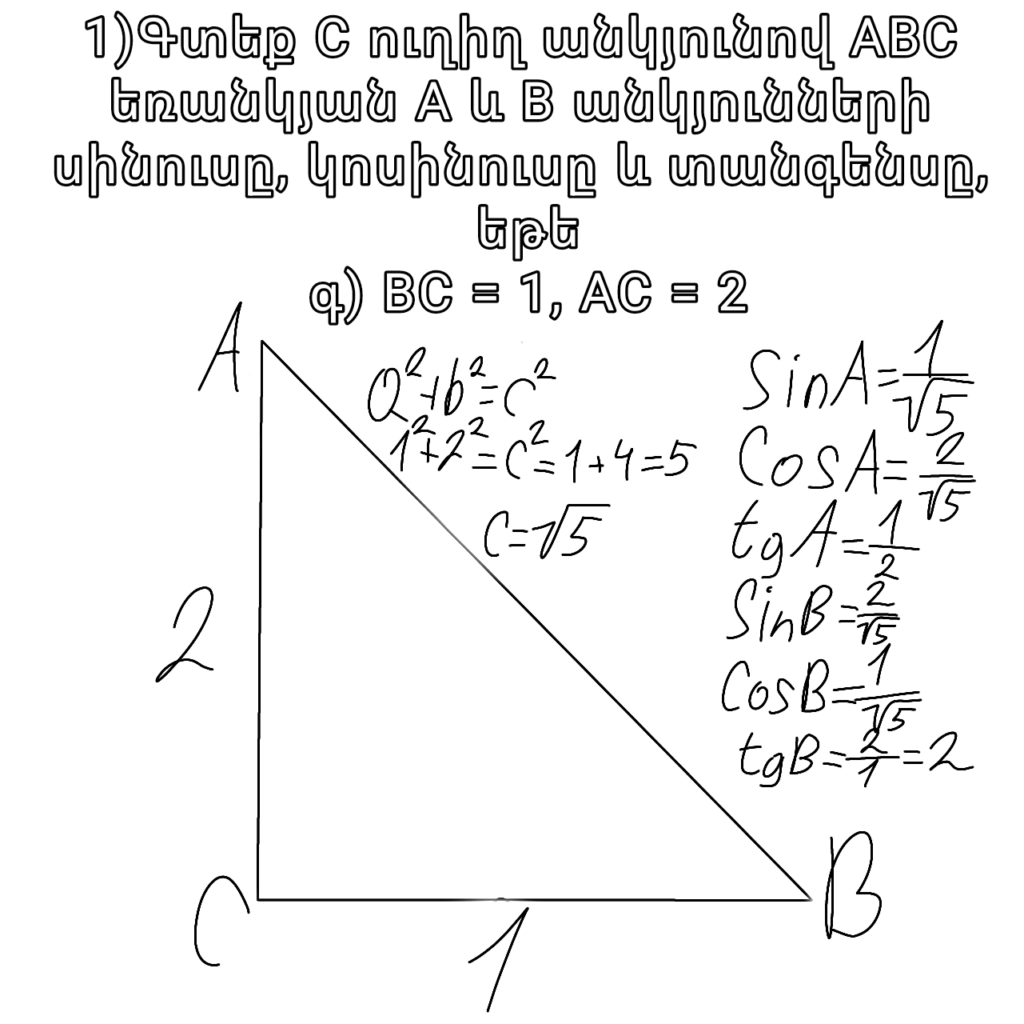 1)Գտեք C ուղիղ անկյունով ABC
եռանկյան A և B անկյունների
սինուսը, կոսինուսը և տանգենսը,
եթե
գ) BC = 1, AC = 2
A
a²+b²=c²
1²+2²=c²=1+4=5
c=√5
SinA=1/√5
CosA=2/√5
tgA=1/2
SinB=2/√5
CosB=1/√5
tgB=2/1=2
2
C
B
1